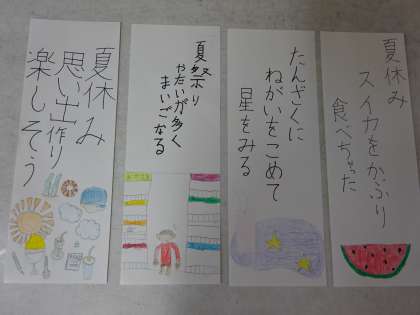 夏休み
思い出作り
楽しそう
夏祭り
やたいが多く
まいごなる
たんざくに
ねがいをこめて
星をみる
夏休み
スイカをかぶり
食べちゃった